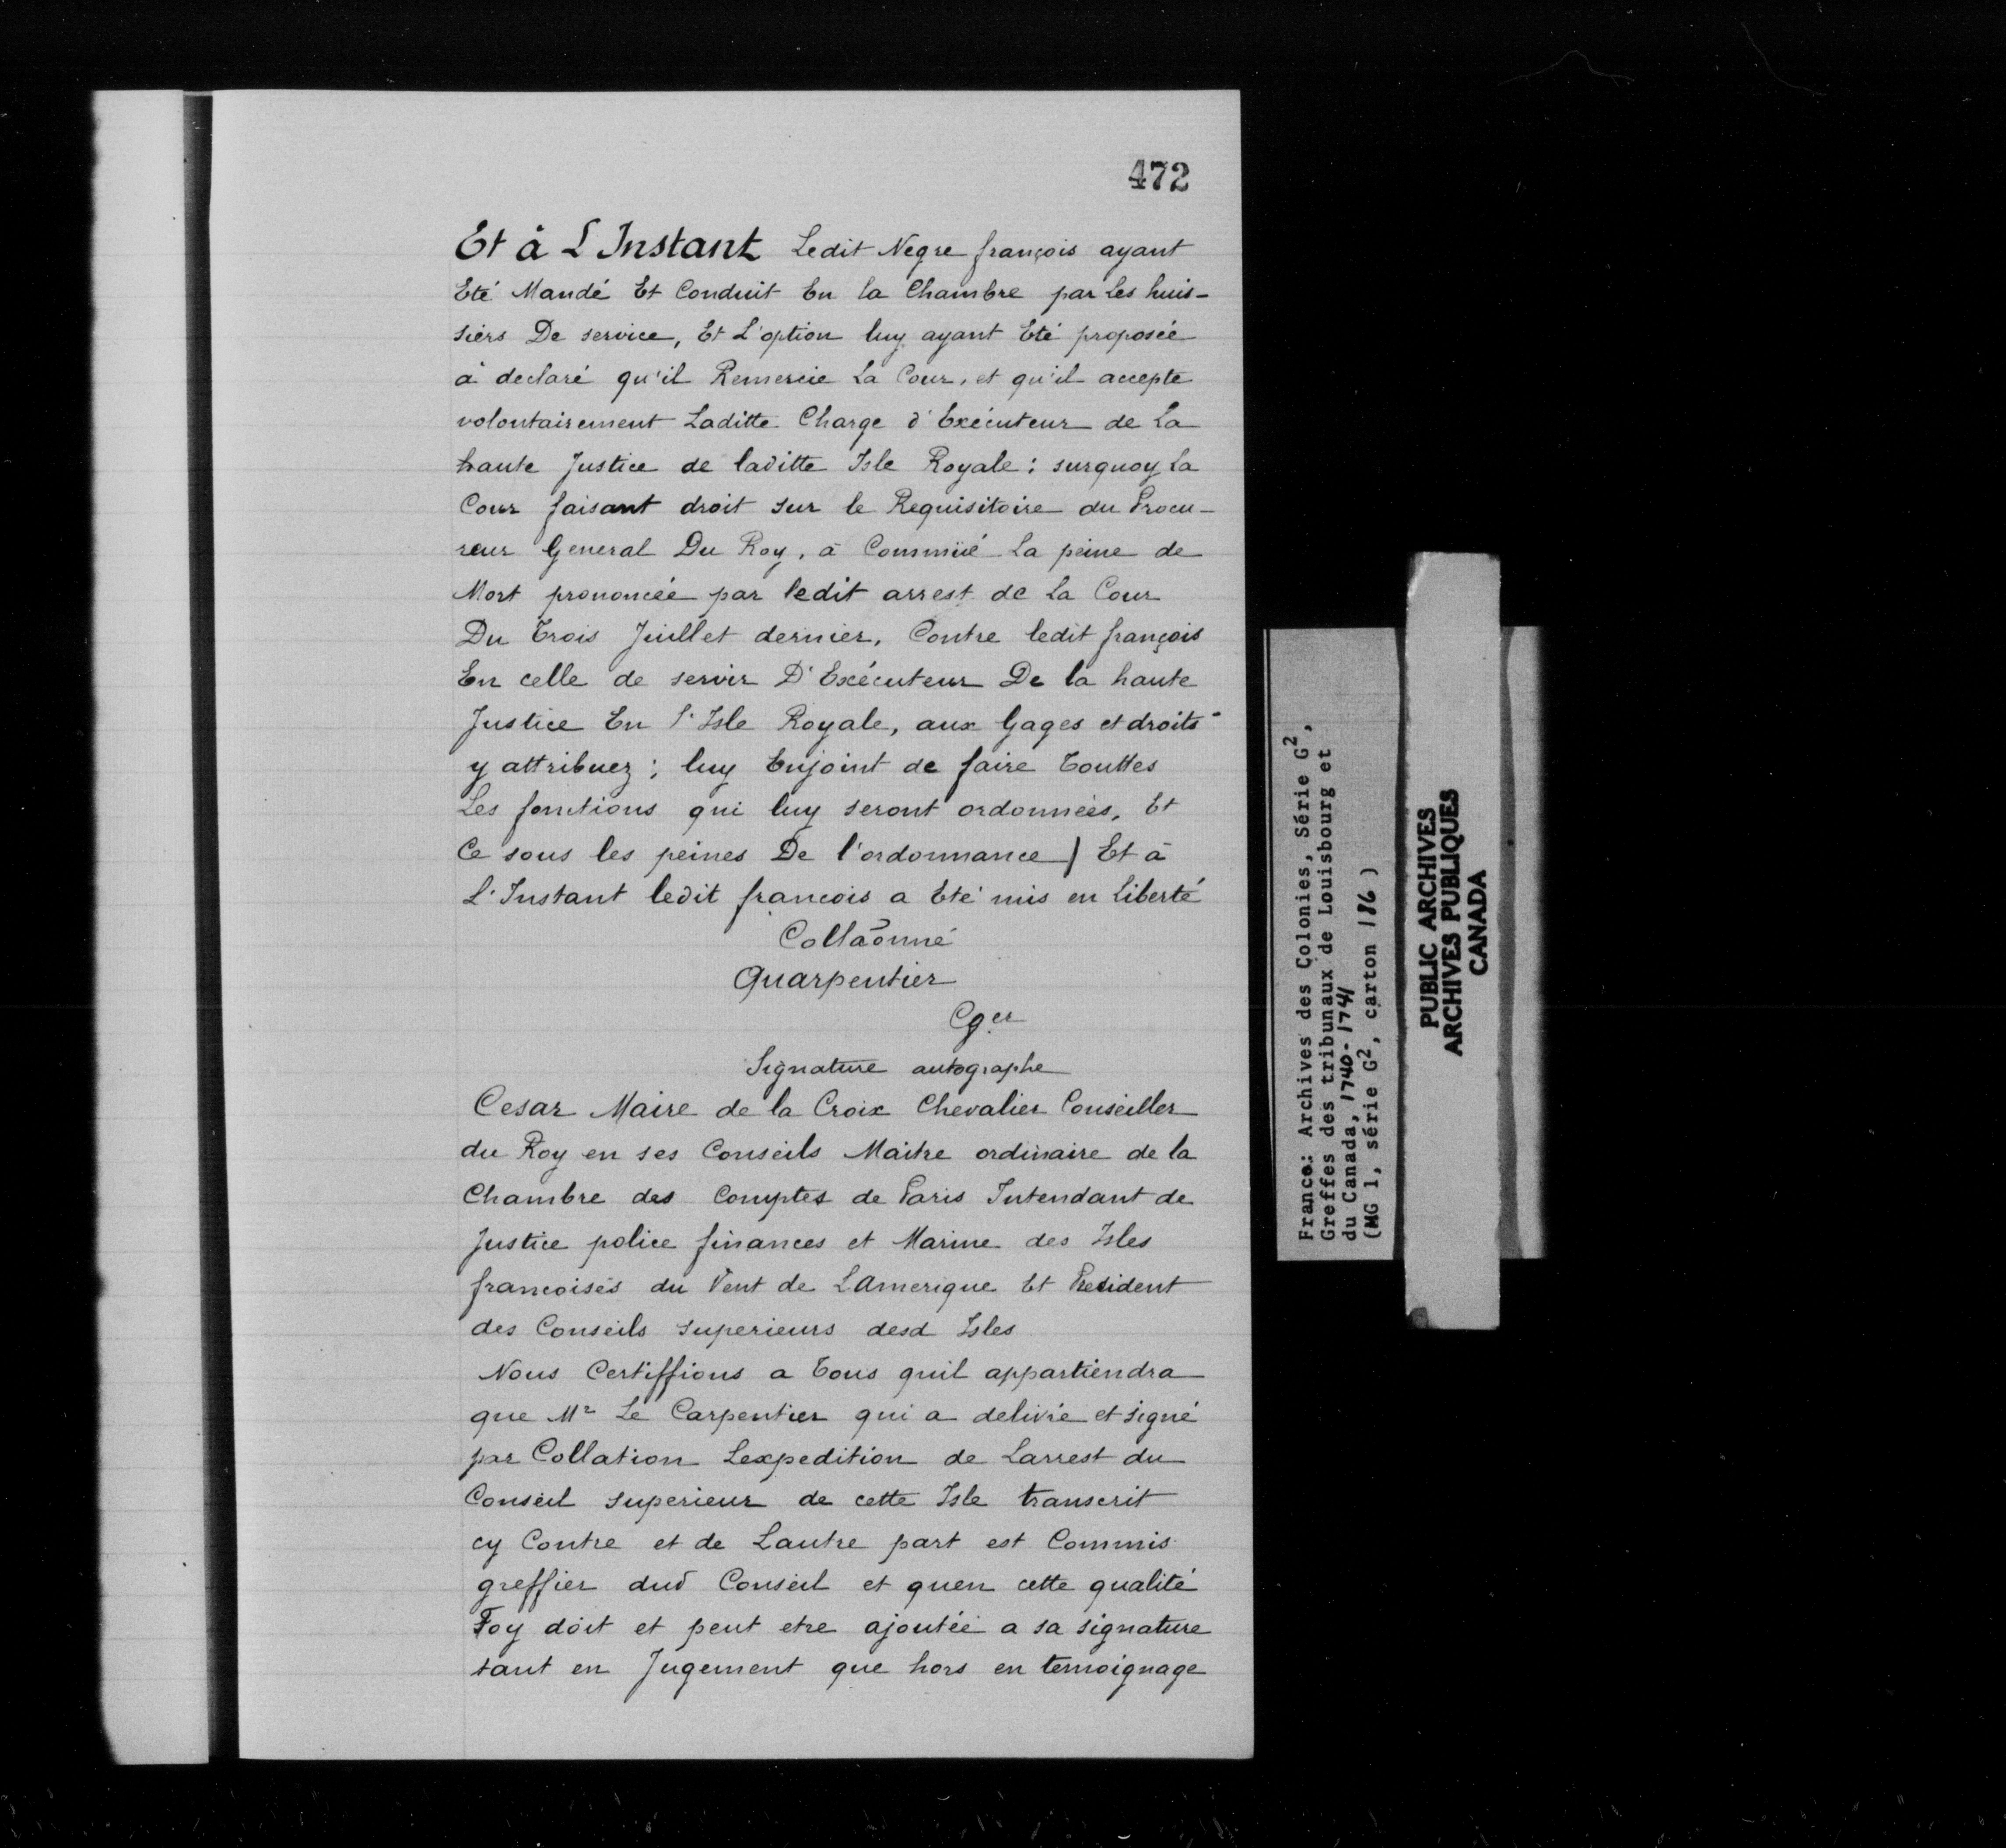 472
Et à L'Instant Ledit Negre françois ayant
Eté Mandé Et Conduit En la Chambre par Les huis-
siers De service, Et L'option luy ayant Eté proposée
à declaré qu'il Remercie La Cour, et qu'il accepte
volontairement Laditte Charge d'Exécuteur de La
haute Justice de laditte Isle Royale ; surquoy La
Cour faisant droit sur le Requisitoire du Procu-
reur General Du Roy, à Commüé La peine de
Mort prononcée par ledit arrest de La Cour
Du Trois Juillet dernier, Contre ledit françois
En celle de servir D'Exécuteur De la haute
Justice En l'Isle Royale, aux Gages et droits
y attribuez ; luy Enjoint de faire Touttes
Les fonctions qui luy seront ordonnées, Et
Ce sous les peines De l'ordonnance / Et à
L'Instant ledit francois a Eté mis en Liberté
Collaõnné
Quarpentier
Cger
Signature autographe
Cesar Maire de la Croix Chevalier Conseiller
du Roy en ses Conseils Maitre ordinaire de la
Chambre des Comptes de Paris Intendant de
Justice police finances et Marine des Isles
francoises du Vent de LAmerique Et President
des Conseils superieurs desd Isles
Nous Certiffions a Tous quil appartiendra
que Mr Le Carpentier qui a delivré et signé
par Collation Lexpedition de Larrest du
Conseil superieur de cette Isle transcrit
cy Contre et de Lautre part est Commis
greffier dud Conseil et quen cette qualité
Foy doit et peut etre ajoutée a sa signature
tant en Jugement que hors en temoignage
France: Archives des Colonies, Série G2,
Greffes des tribunaux de Louisbourg et
du Canada, 1740-1741
(MG 1, série G2, carton 186)
PUBLIC ARCHIVES
ARCHIVES PUBLIQUES
CANADA